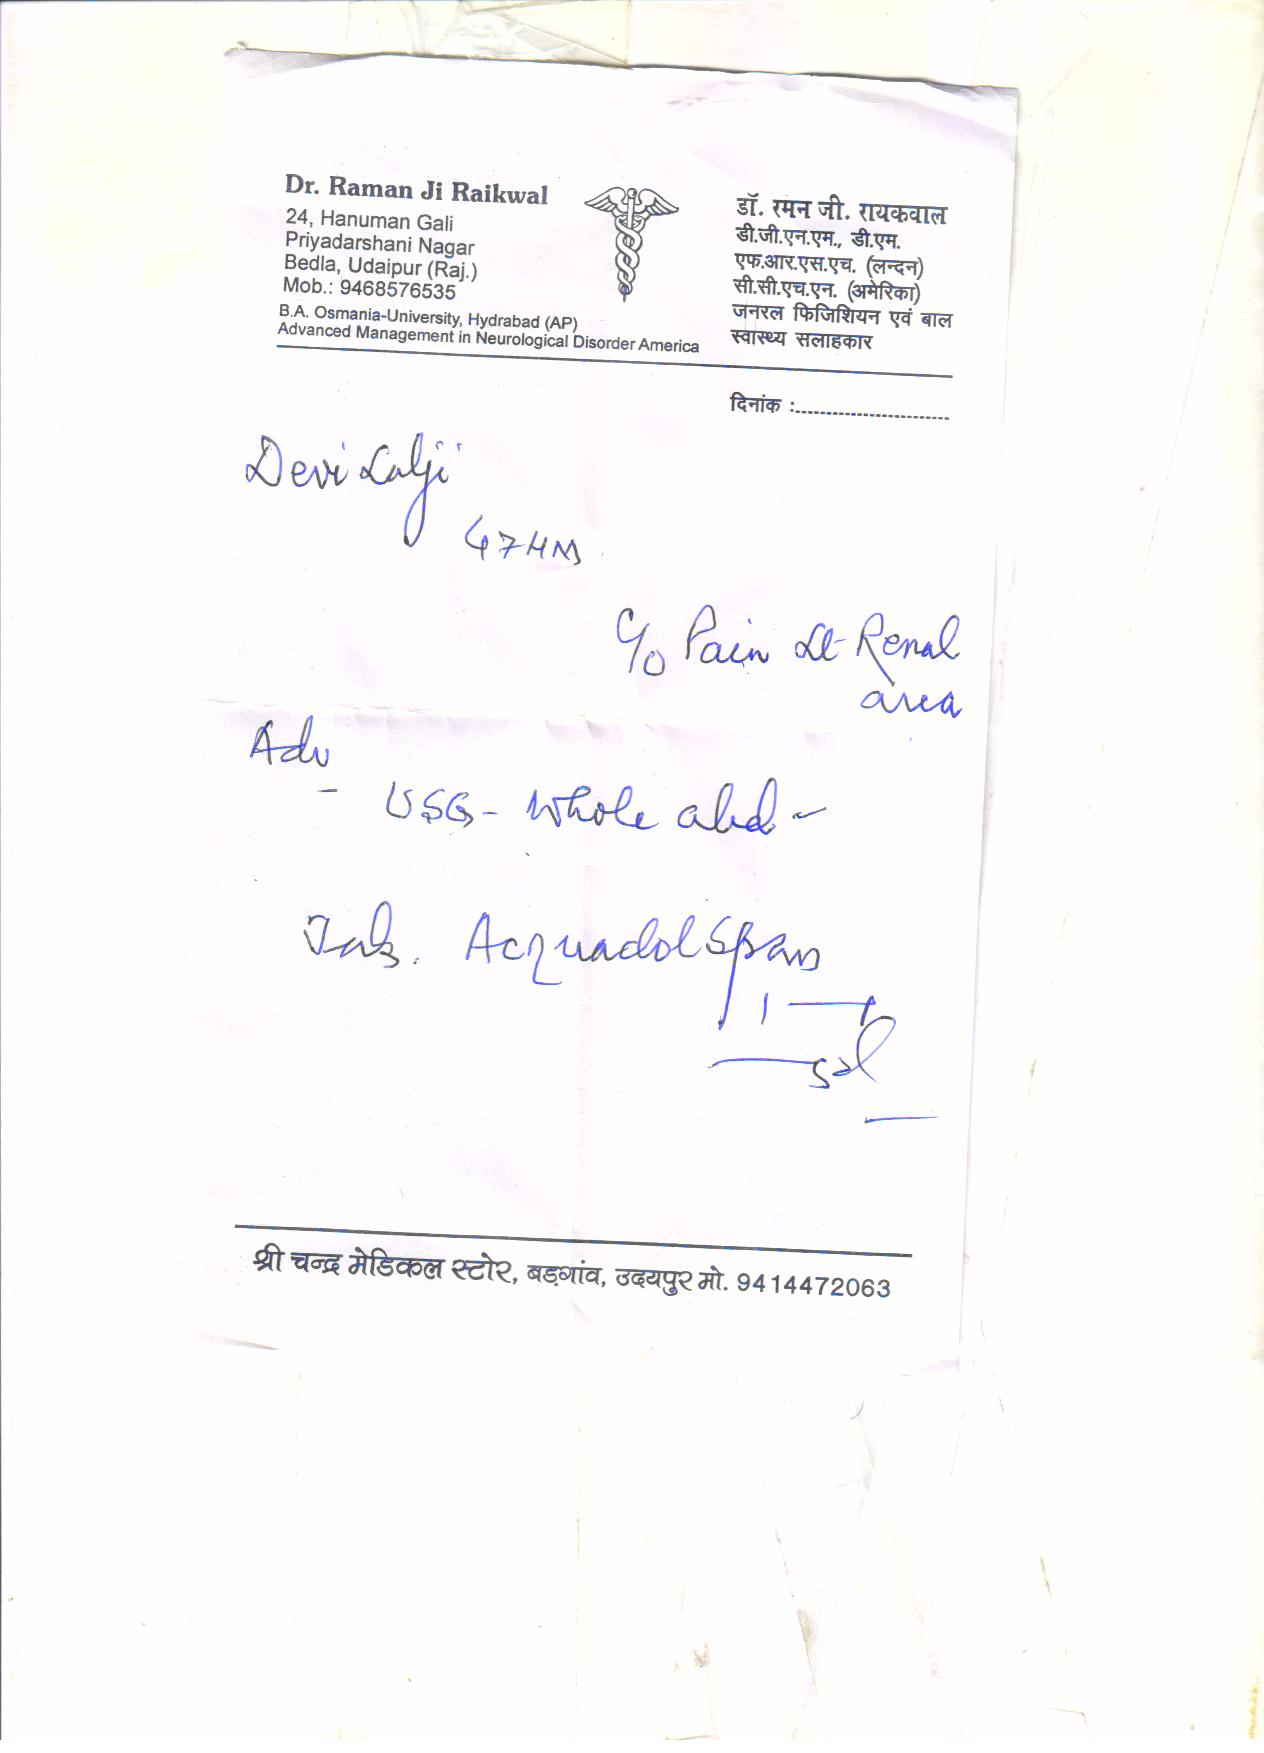 Dr. Raman Ji Raikwal
24, Hanuman Gali
Priyadarshani Nagar
Bedla, Udaipur (Raj.)
Mob.: 9468576535
B.A. Osmania-University, Hydrabad (AP)
Advanced Management in Neurological Disorder America
डॉ. रमन जी. रायकवाल
डी.जी.एन.एम., डी.एम.
एफ.आर.एस.एच. (लन्दन)
सी.सी.एच.एन. (अमेरिका)
जनरल फिजिशियन एवं बाल
स्वास्थ्य सलाहकार
दिनांक :........................
Devi Lalji
C/o Pain Lt Renal
area
Adv
- USG - Whole abd -
Tab. Acquadol Spas
श्री चन्द्र मेडिकल स्टोर, बड़गांव, उदयपुर मो. 9414472063